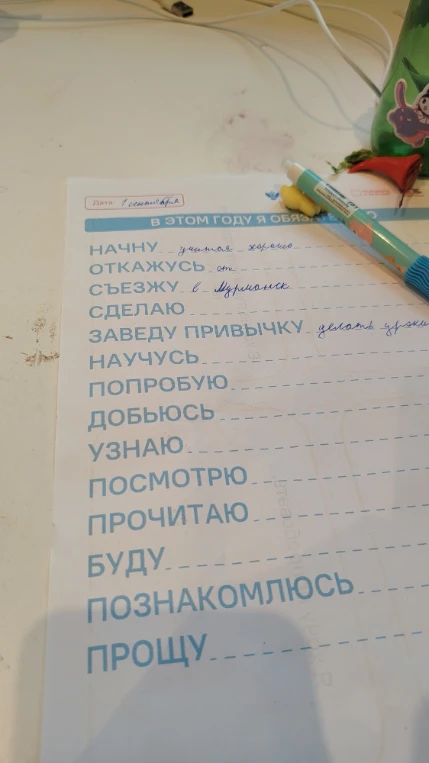 Дата: 1 сентября
В ЭТОМ ГОДУ Я
НАЧНУ учится хорошо
ОТКАЖУСЬ от
СЪЕЗЖУ в Мурманск
СДЕЛАЮ
ЗАВЕДУ ПРИВЫЧКУ делать
НАУЧУСЬ
ПОПРОБУЮ
ДОБЬЮСЬ
УЗНАЮ
ПОСМОТРЮ
ПРОЧИТАЮ
БУДУ
ПОЗНАКОМЛЮСЬ
ПРОЩУ